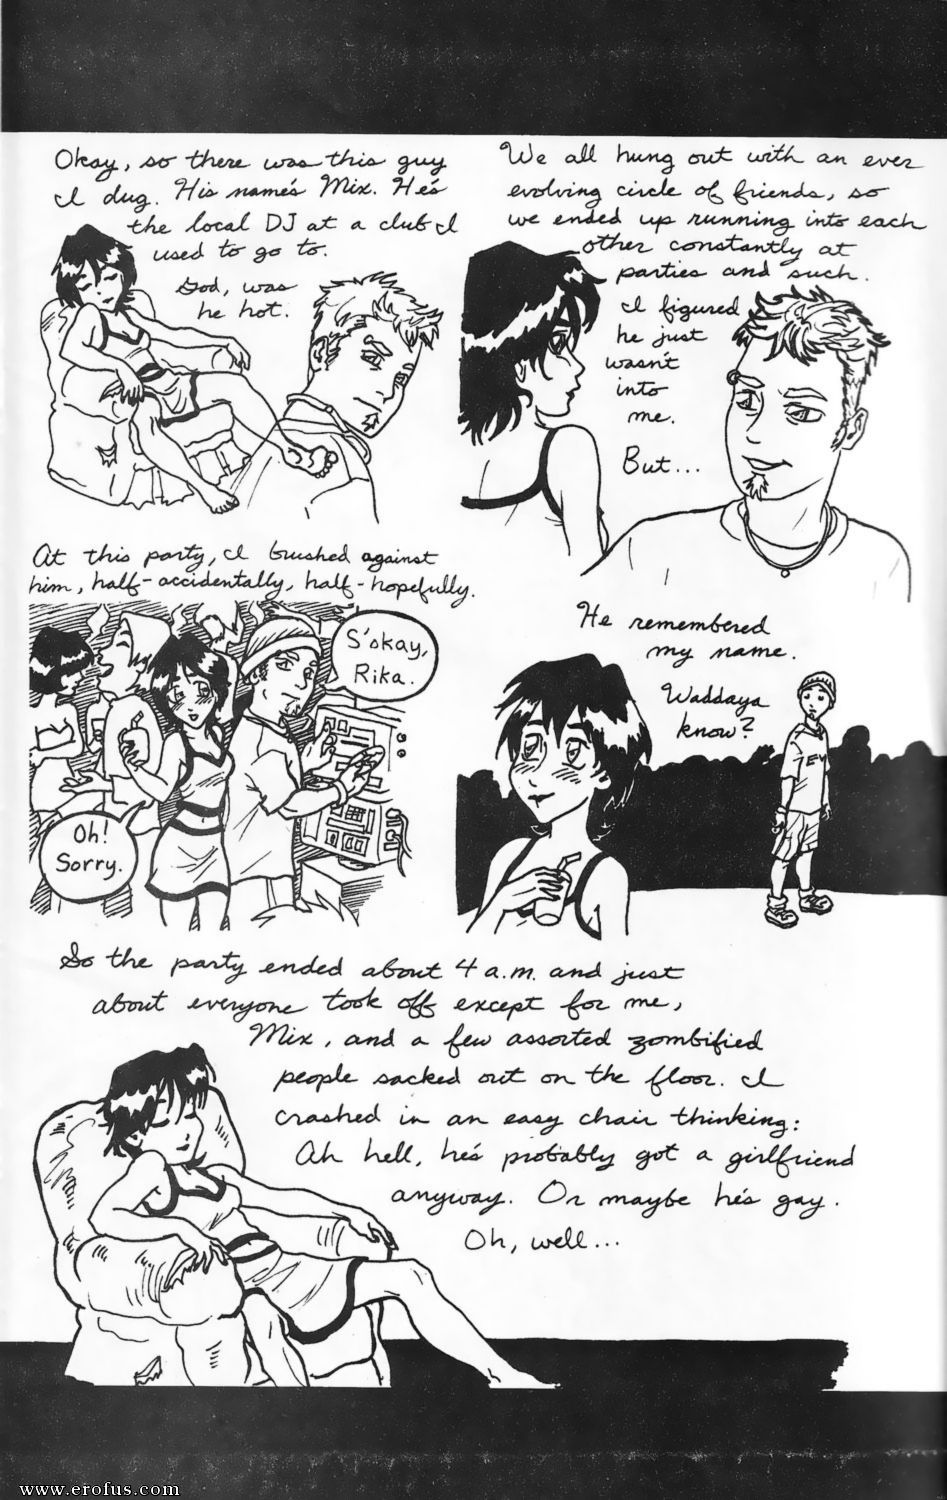 Okay, so there was this guy
I dug. His name's Mix. He's
the local DJ at a club I
used to go to.
God, was
he hot.
We all hung out with an ever
evolving circle of friends, so
we ended up running into each
other constantly at
parties and such.
I figured
he just
wasn't
into
me.
But...
At this party, I brushed against
him, half-accidentally, half-hopefully.
S'okay,
Rika.
Oh!
Sorry.
He remembered
my name.
Waddaya
know?
So the party ended about 4 a.m. and just
about everyone took off except for me,
Mix, and a few assorted zombified
people sacked out on the floor. I
crashed in an easy chair thinking:
Ah hell, he's probably got a girlfriend
anyway. Or maybe he's gay.
Oh, well...
www.erofus.com